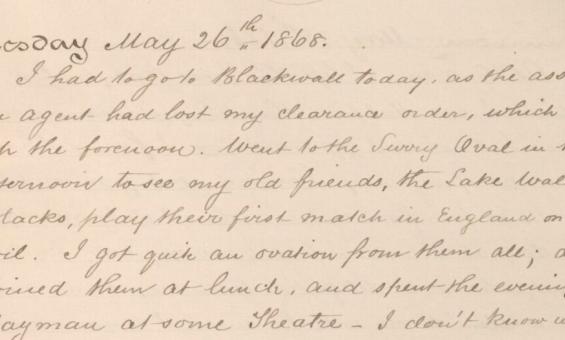 esday May 26th 1868.
I had to go to Blackwall today, as the ass
agent had lost my clearance order, which
the forenoon. Went to the Surry Oval in
ternoon to see my old friends, the Lake Wal
lacks, play their first match in England on
il. I got quite an ovation from them all; a
oined them at lunch, and spent the evenin
ayman at some Theatre – I don't know w